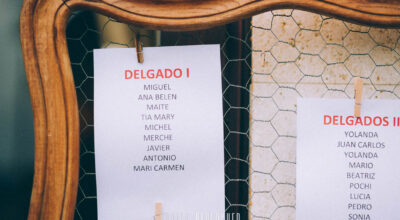 DELGADO I
MIGUEL
ANA BELEN
MAITE
TIA MARY
MICHEL
MERCHE
JAVIER
ANTONIO
MARI CARMEN
DELGADOS II
YOLANDA
JUAN CARLOS
YOLANDA
MARIO
BEATRIZ
POCHI
LUCIA
PEDRO
SONIA